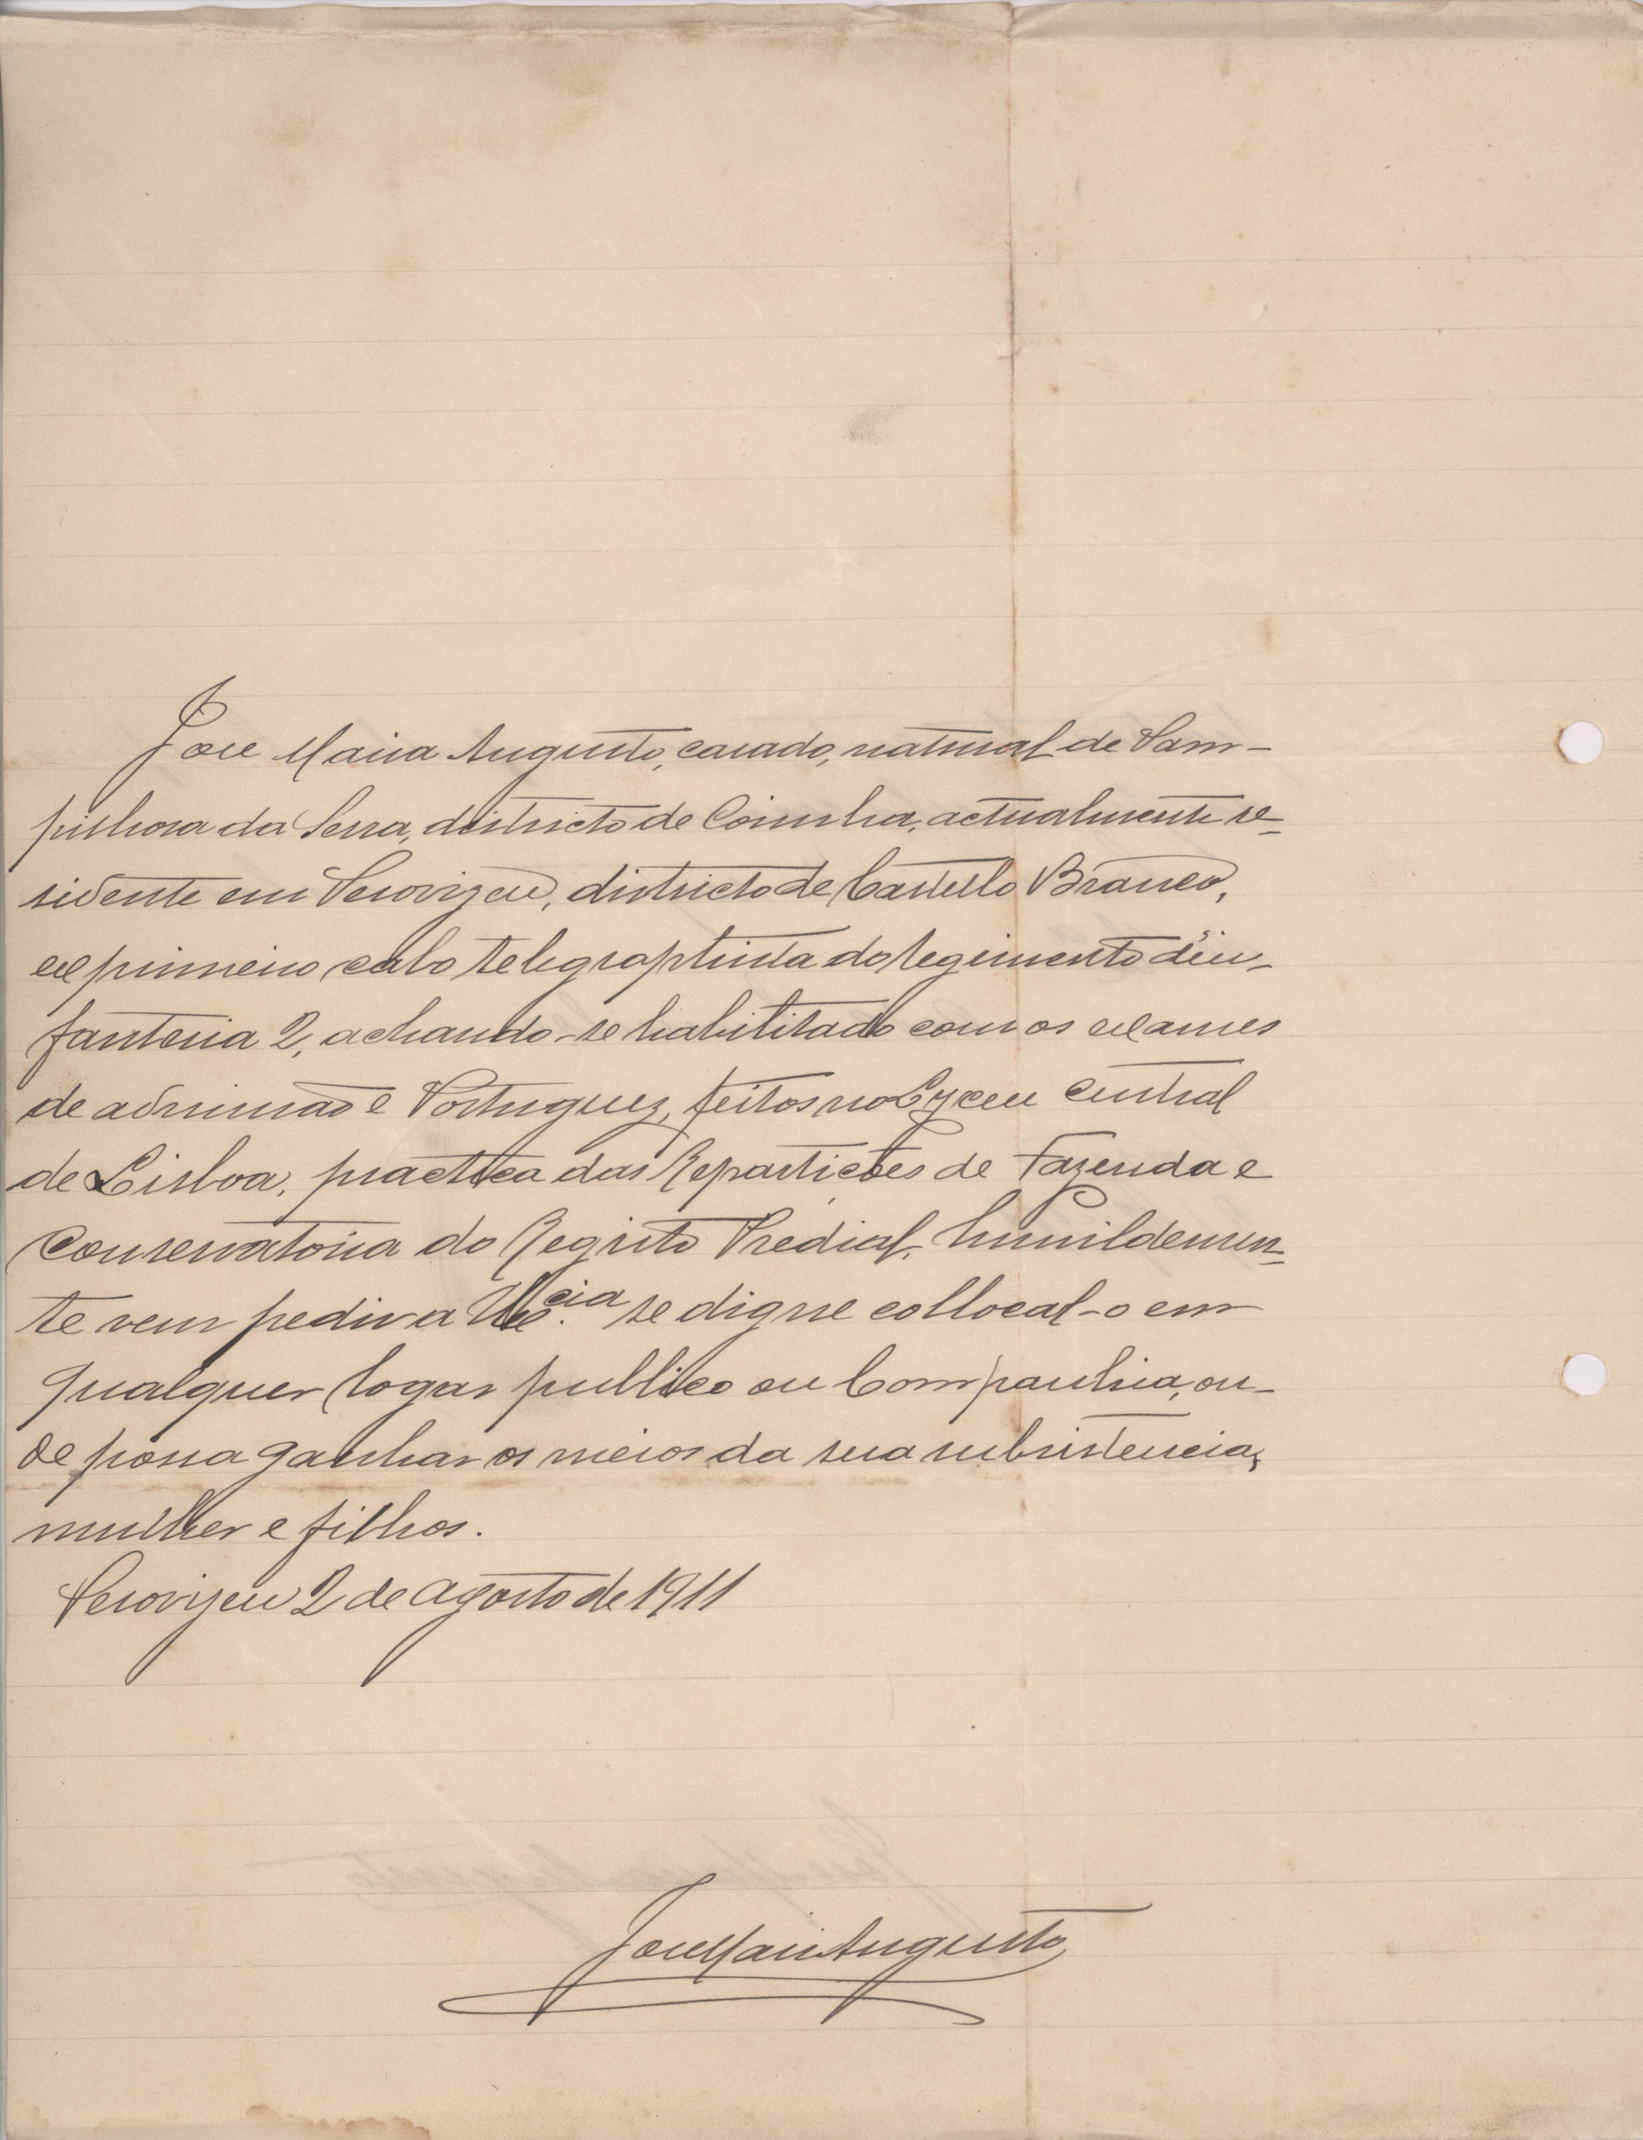 José Maria Augusto, casado, natural de Pam-
pilhosa da Serra, districto de Coimbra, actualmente re-
sidente em Perovizeu, districto de Castello Branco,
ex primeiro cabo telegraphista do regimento d'in-
fanteria 2, achando-se habilitado com os exames
de admissão e Portuguez, feitos no Lyceu Central
de Lisboa, practica das Repartições de Fazenda e
Conservatoria do Registo Predial, humildemen-
te vem pedir a V. Ex.cia se digne collocal-o em
qualquer logar publico ou Companhia, on-
de possa ganhar os meios da sua subsistencia,
mulher e filhos.
Perovizeu 2 de Agosto de 1911
José Maria Augusto